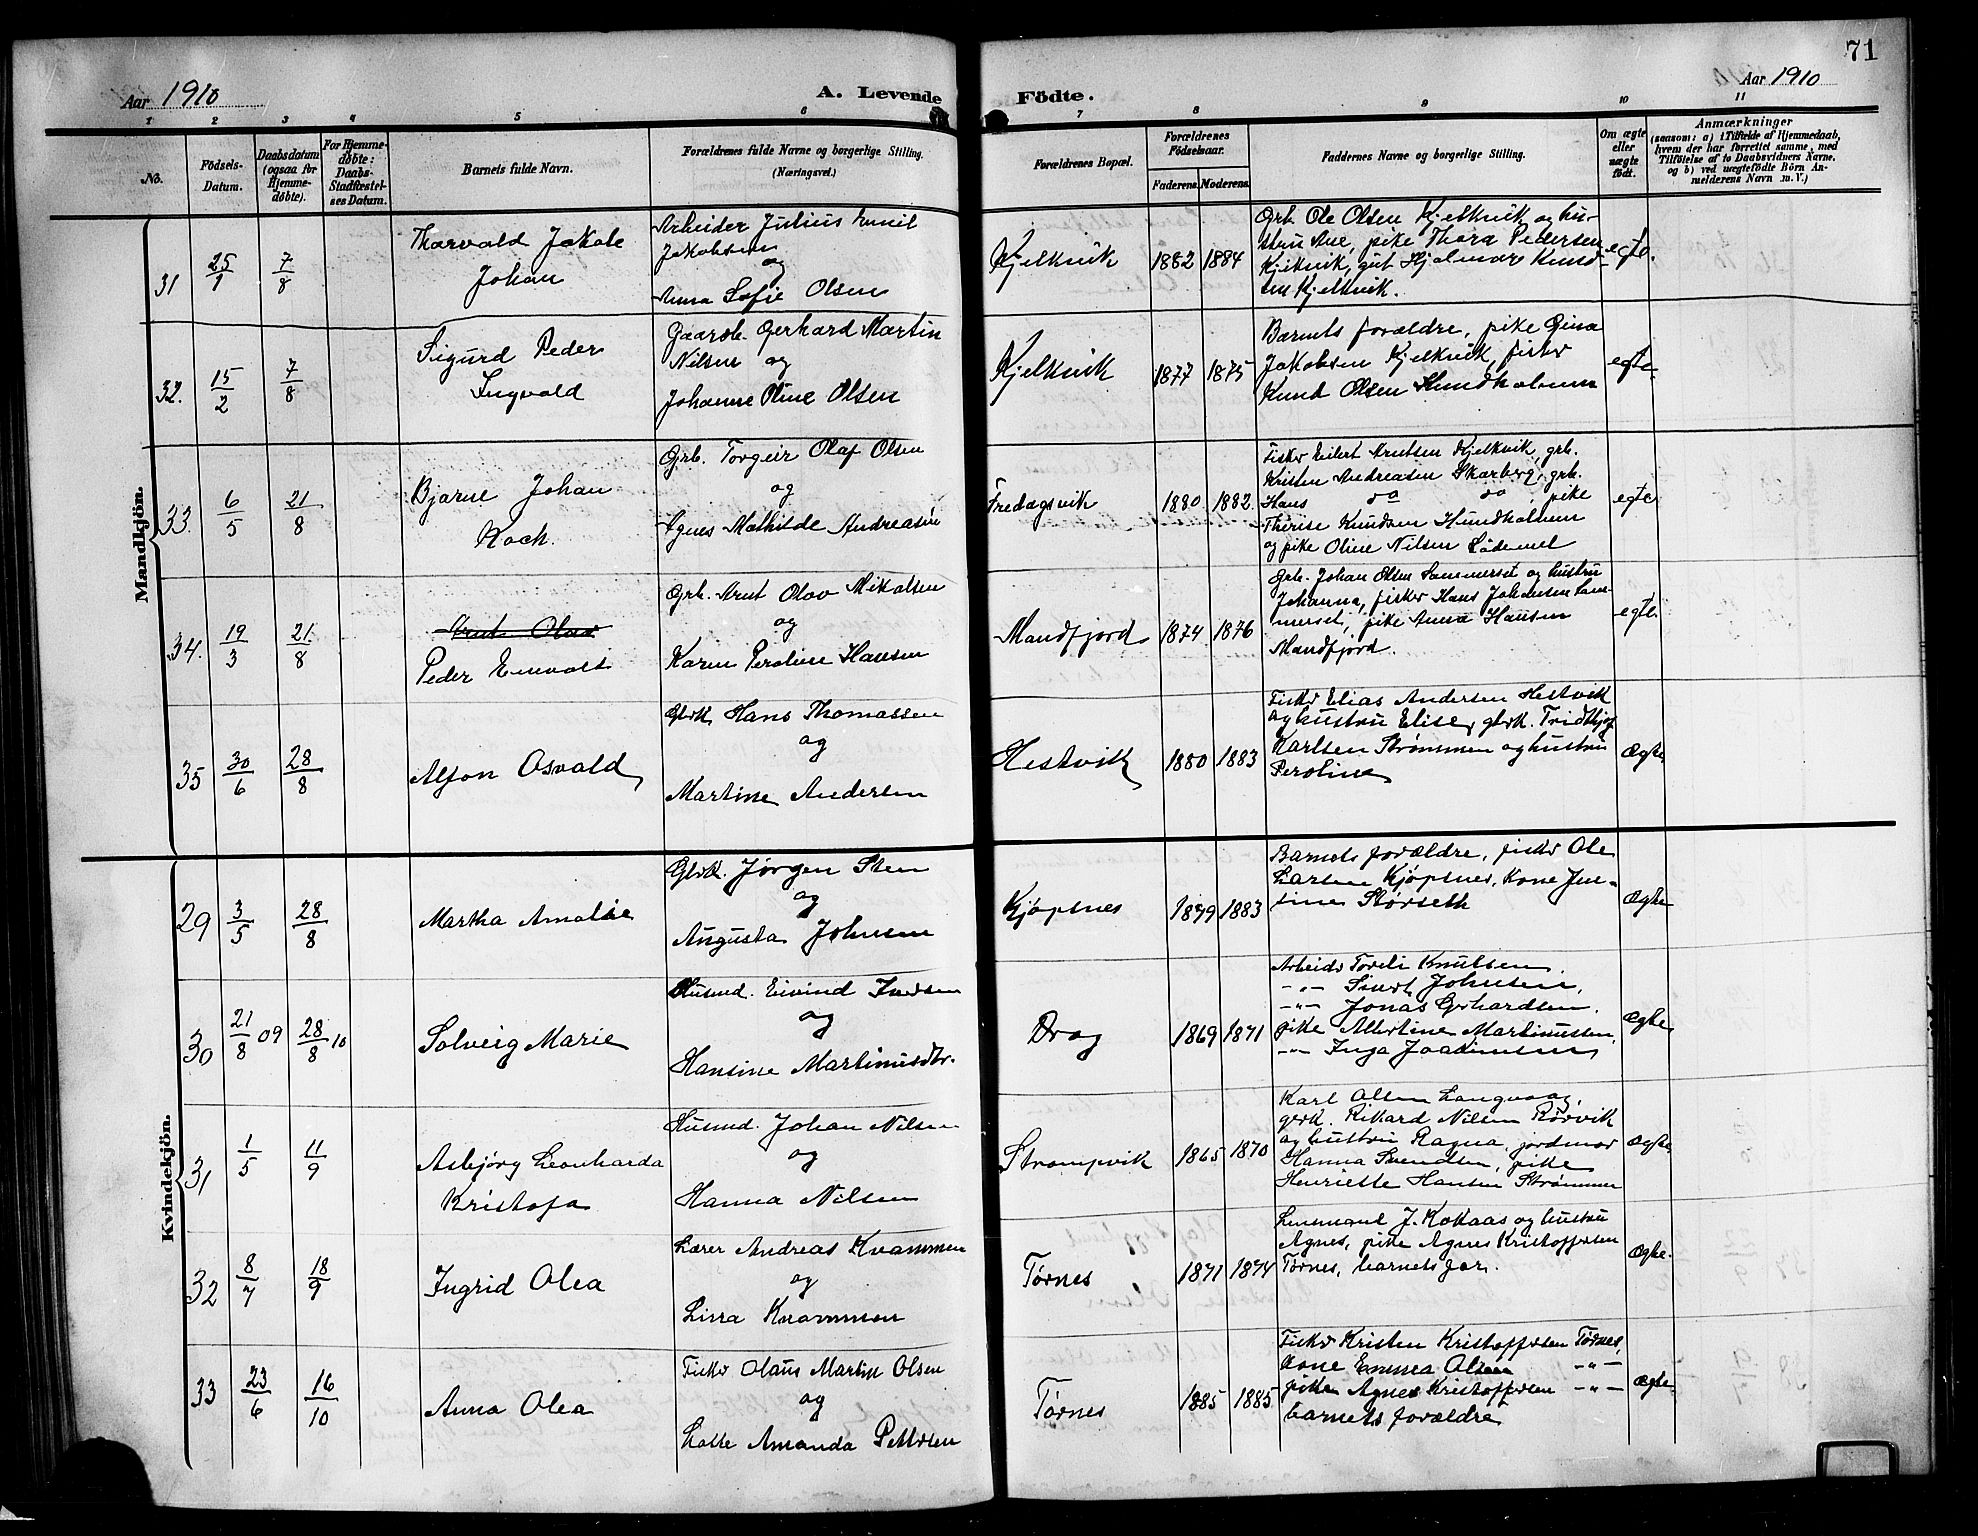 71
Aar 1910
A. Levende
Födte.
Aar 1910
1 2 3 4 5 6 7 8 9 10 11
No.
Födsels-
Datum.
Daabsdatum
(ogsaa for
Hjemme-
döbte).
For Hjemme-
döbte:
Daabs-
Stadfæstel-
ses Datum.
Barnets fulde Navn.
Forældrenes fulde Navne og borgerlige Stilling.
(Næringsvei.)
Forældrenes Bopæl.
Forældrenes
Födselsaar.
Faderens.
Moderens.
Faddernes Navne og borgerlige Stilling.
Om ægte
eller
uægte
födt.
Anmærkninger
(saasom: a) i Tilfælde af Hjemmedaab,
hvem der har forrettet samme, med
Tilföielse af to Daabsvidners Navne.
og b) ved uægtefödte Börn An-
melderens Navn m. V.)
Mandkjön.
31
25/1
7/8
Thorvald Jakob
Johan
Arbeider Julius Emil
Jakobsen
og
Anna Sofie Olsen
Kjelkvik
1882
1884
Grb. Ole Olsen Kjelkvik og hu-
stru Ane, pike Thora Pedersen
Kjelkvik, gut Hjalmar Knud-
sen Kjelkvik.
egte.
32.
15/2
7/8
Sigurd Peder
Ingvald
Gaardb. Gerhard Martin
Nilsen og
Johanne Oline Olsen
Kjelkvik
1877
1875
Barnets forældre, pike Gina
Jakobsen Kjelkvik, fisker
Knud Olsen Hundholmen
egte.
33.
6/5
21/8
Bjarne Johan
Koch.
Grb. Torgeir Olaf Olsen
og
Agnes Mathilde Andreasen
Fredagsvik
1880
1882.
Fisker Eilert Arntsen Kjelkvik, grb.
Kristen Andreasen Skarberg, grb.
Hans do do, pike
Therise Knudsen Hundholmen
og pike Oline Nilsen Lødemel
egte
34.
19/3
21/8
Arnt Olav
Peder Enevald
Grb. Arnt Olav Mikalsen
og
Karen Peroline Hansen
Mandfjord
1874
1876
Grb. Johan Olsen Sommerset og hustru
Johanna, fisker Hans Johansen Som-
merset, pike Anna Hansen
Mandfjord.
egte.
35
30/6
28/8
Alfon Osvald
Gbrk. Hans Thomassen
og
Martine Andersen
Hestvik
1880
1883
Fisker Elias Andersen Hestvik
og hustru Elise, gbrk. Fridthjof
Karlsen Strømmen og hustru
Peroline
Ægte
Kvindekjön.
29
3/5
28/8
Martha Amalie
Gbrk. Jørgen Sten
og
Augusta Johnsen
Kjøpsnes
1879
1883
Barnets forældre, fisker Ole
Larsen Kjøpsnes, Kone Jen-
sine Størseth
Ægte
30
21/8 09
28/8 10
Solveig Marie
Husmd. Eivind Iversen
og
Hansine Martinusdtr.
Drag
1869
1871
Arbeider Torleif Knutsen.
-"- Sivert Johnsen,
-"- Jonas Gerhardsen.
pike Albertine Martinussen,
-"- Inga Joakimsen
Ægte.
31
1/5
11/9
Asbjørg Leonharda
Kristofa
Husmd. Johan Nilsen
og
Hanna Nilsen
Strompvik
1865
1870
Karl Olsen Langvaag,
gbrk. Rikard Nilsen Rørvik
og hustru Ragna, jordmor
Hanna Svendsen, pike
Henriette Hansen Strømmen
Ægte
32
8/7
18/9
Ingrid Olea
Lærer Andreas Kvammen
og
Lina Kvammen
Tørnes
1871
1874
Lensmand J. Kokaas og hustru
Agnes, pike Agnes Kristoffersen
Tørnes, barnets far.
Ægte.
33
23/6
16/10
Anna Olea
Fisker Olaus Martin Olsen
og
Lotte Amanda Pettersen
Tørnes
1885
1885
Fisker Kristen Kristoffersen Tørnes,
kone Emmea Olsen -"-
piken Agnes Kristoffersen -"-
barnets forældre
Ægte.